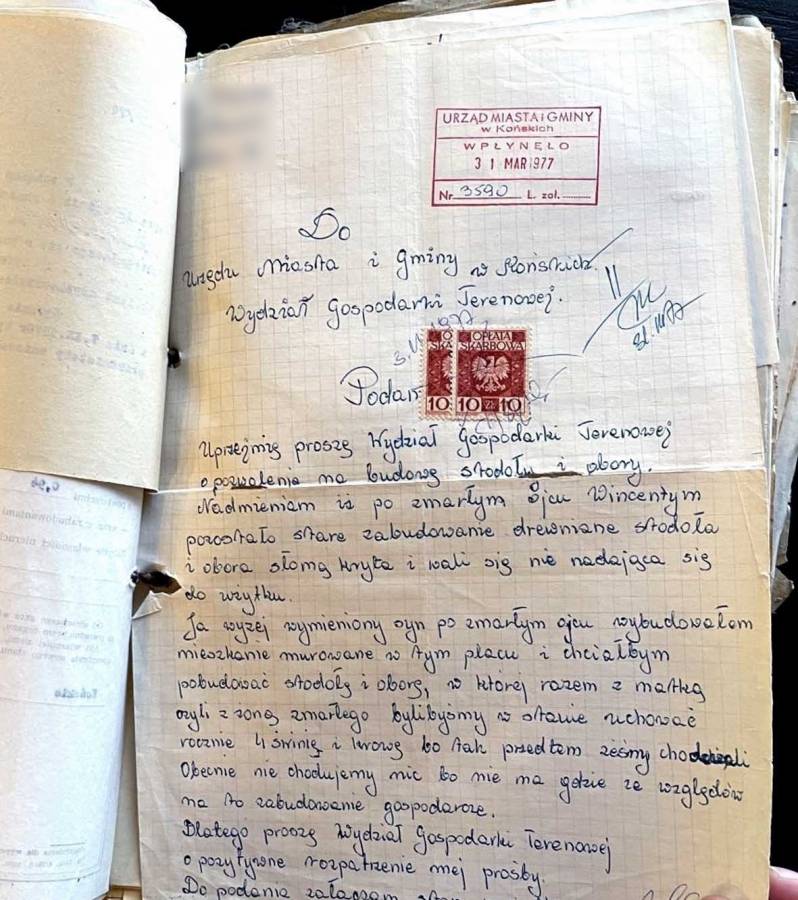 URZĄD MIASTA i GMINY
w Końskich
WPŁYNĘŁO
31 MAR 1977
Nr 3590 L. zał.
Do
Urzędu Miasta i Gminy w Końskich.
Wydział Gospodarki Terenowej.
OPŁATA
SKARBOWA
10 10 ZŁ 10
Podan
Uprzejmię proszę Wydział Gospodarki Terenowej
o pozwolenia na budowę stodoły i obory.
Nadmieniam iż po zmarłym Ojcu Wincentym
pozostało stare zabudowanie drewniane stodoła
i obora słomą kryta i wali się nie nadająca się
do użytku.
Ja wyżej wymieniony syn po zmarłym ojcu wybudowałem
mieszkanie murowane w tym placu i chciałbym
pobudować stodołę i oborę, w której razem z matką
czyli z żoną zmarłego bylibyśmy w stanie uchować
rocznie 4 świnię i krowę bo tak przedtem żeśmy
Obecnie nie chodujemy nic bo nie ma gdzie ze względów
na to zabudowanie gospodarcze.
Dlatego proszę Wydział Gospodarki Terenowej
o pozytywne rozpatrzenie mej prośby.
Do podania załączam